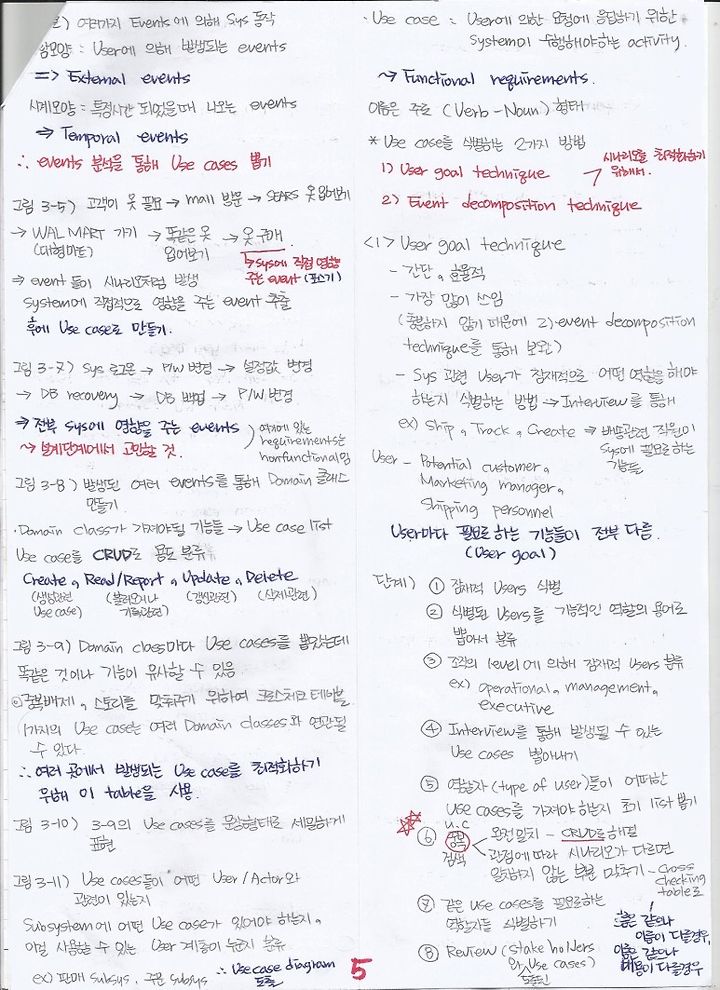 ) 여러가지 Events에 의해 Sys 동작
: User에 의해 발생되는 events
=> External events
시계모양 : 특정시간 되었을때 나오는 events
⇒ Temporal events
∴ events 분석을 통해 Use cases 뽑기
그림 3-5) 고객이 옷 필요 → mall 방문 → SEARS 옷 입어보기
→ WAL MART 가기 → 똑같은 옷 → 옷 구매
(대형마트) 입어보기
↳ Sys에 직접 영향
주는 event (포스기)
⇒ event 들이 시나리오처럼 발생
System에 직접적으로 영향을 주는 event 추출
후에 Use case로 만들기.
그림 3-7) Sys 로그온 → P/W 변경 → 설정값 변경
→ DB recovery → DB 백업 → P/W 변경
⇒ 전부 sys에 영향을 주는 events
~> 설계단계에서 고민할 것.
여기에 있는
requirements는
nonfunctional임
그림 3-8) 발생된 여러 events를 통해 Domain 클래스
만들기
·Domain class가 가져야될 기능들 → Use case list
Use case를 CRUD로 용도 분류
Create, Read/Report, Update, Delete
(생성관련 (불러오거나 (갱신관련) (삭제관련)
Use case) 기록관련)
그림 3-9) Domain class마다 Use cases를 뽑았는데
똑같은 것이나 기능이 유사할 수 있음
◎중복배제, 스토리를 맞춰주기 위하여 크로스체크 테이블.
1가지의 Use case는 여러 Domain classes와 연관될
수 있다.
∴ 여러 곳에서 발생되는 Use case를 최적화하기
위해 이 table을 사용.
그림 3-10) 3-9의 Use cases를 문장형태로 세밀하게
표현
그림 3-11) Use cases들이 어떤 User/Actor와
관련이 있는지
Subsystem에 어떤 Use case가 있어야 하는지,
이걸 사용할 수 있는 User 계층이 누군지 분류
ex) 판매 subsys, 주문 subsys ∴ Use case diagram
도출
5
· Use case : User에 의한 요청에 응답하기 위한
System이 수행해야하는 activity.
~> Functional requirements.
이름은 주로 (Verb-Noun) 형태
* Use case를 식별하는 2가지 방법
1) User goal technique
시나리오를 최적화하기
위해서.
2) Event decomposition technique
<1> User goal technique
- 간단, 효율적
- 가장 많이 쓰임
(충분하지 않기 때문에 2)-event decomposition
technique를 통해 보완)
- Sys 관련 User가 잠재적으로 어떤 역할을 해야
하는지 식별하는 방법 → Interview를 통해
ex) Ship, Track, Create ⇒ 배송관련 직원이
Sys에 필요로 하는
기능들
User - Potential customer,
Marketing manager,
Shipping personnel
User마다 필요로 하는 기능들이 전부 다름
(User goal)
단계) ① 잠재적 Users 식별
② 식별된 Users를 기능적인 역할의 용어로
뽑아서 분류
③ 조직의 level에 의해 잠재적 Users 분류
ex) operational, management,
executive
④ Interview를 통해 발생될 수 있는
Use cases 뽑아내기
⑤ 역할자 (type of user)들이 어떠한
Use cases를 가져야 하는지 초기 list 뽑기
U.C
⑥ 중복 완전일치 - CRUD로 해결
검색 관점에 따라 시나리오가 다르면
일치하지 않는 부분 맞추기 - Cross
checking
table로
⑦ 같은 use cases를 필요로하는
역할자를 식별하기
내용은 같으나
이름이 다를경우,
이름은 같으나
내용이 다를경우
⑧ Review (stake holders
와 Use cases)
도출된